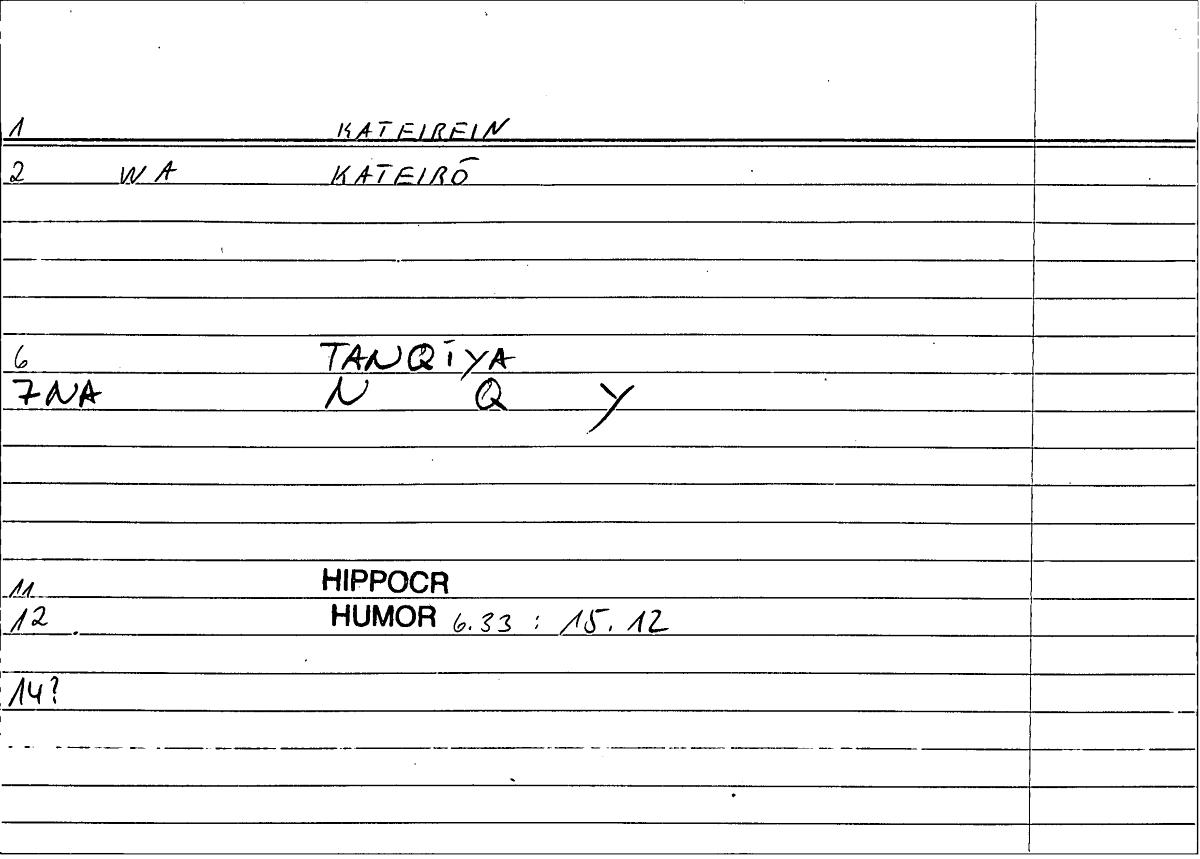 1 KATEIREIN
2 WA KATEIRŌ
6 TANQĪYA
7NA N Q Y
11 HIPPOCR
12 . HUMOR 6.33 : 15.12
14?